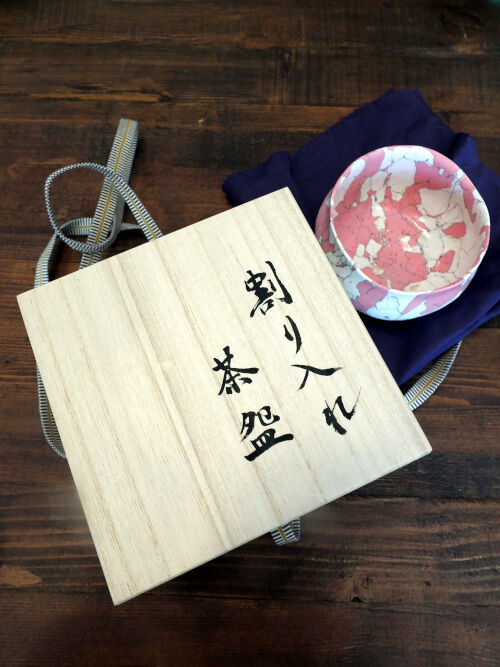 割り入れ
茶盌